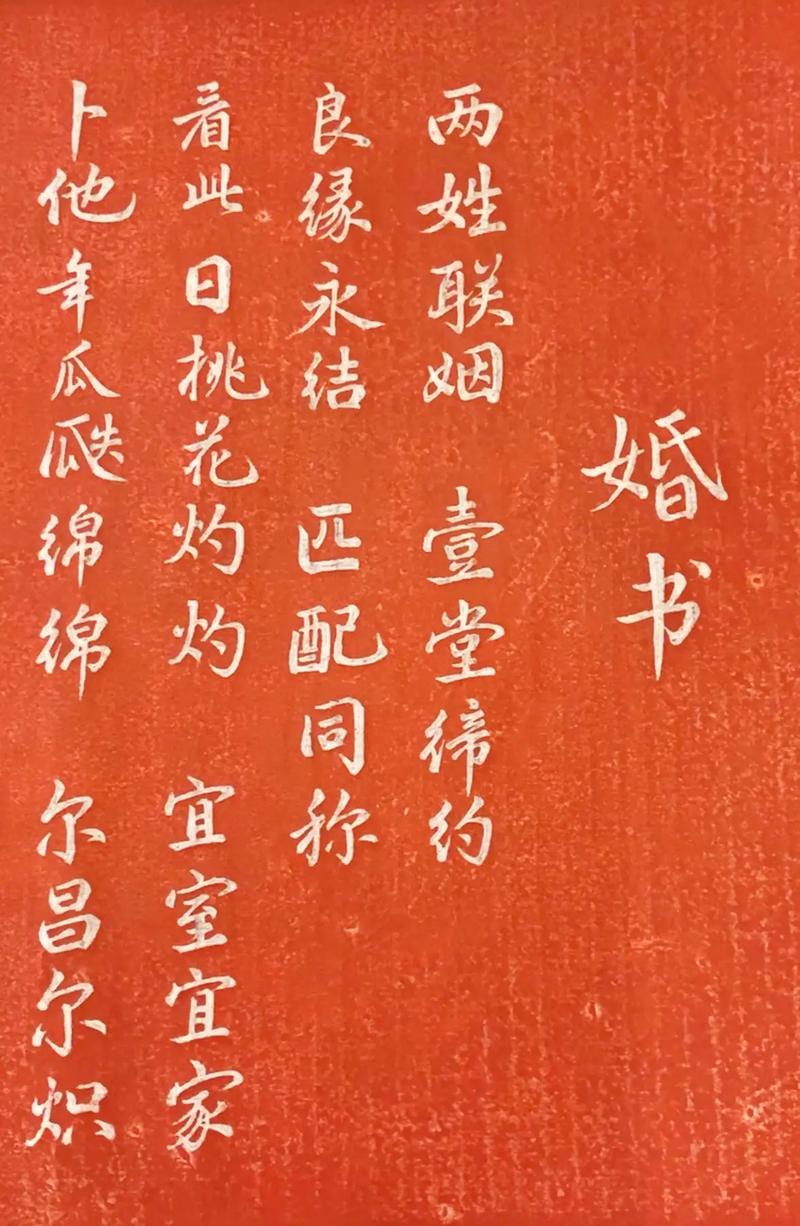 婚书
两姓联姻 壹堂缔约
良缘永结 匹配同称
看此日桃花灼灼 宜室宜家
卜他年瓜瓞绵绵 尔昌尔炽